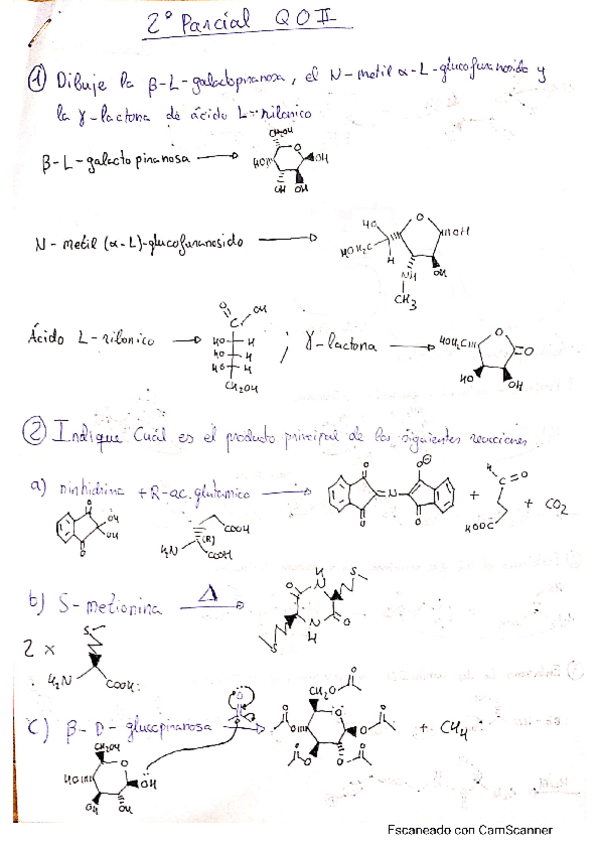 2º Parcial QOII
① Dibuje la β-L-galactopiranosa, el N-metil α-L-glucofuranosido y
la γ-lactona de ácido L-rilonico
β-L-galactopiranosa
CH₂OH
O
HO OH
OH OH
N-metil (α-L)-glucofuranosido
HO O
HOH₂C H
NH OH
CH₃
Ácido L-rilonico ; γ-lactona
O OH
C
HO H
HO H
HO H
CH₂OH
HOH₂C O O
HO OH
② Indique Cuál es el producto principal de las siguientes reacciones
a) ninhidrina + R-ac. glutamico + + CO₂
O OH OH O
H₂N (R) COOH COOH
O O⊖ N O O
H O HOOC
b) S-metionina Δ
2 x
S
H₂N COOH
H N O S
S N H O
c) β-D-glucopiranosa + CH₄
CH₂OH
HO O OH
OH OH
CH₂O O
AcO O OAc